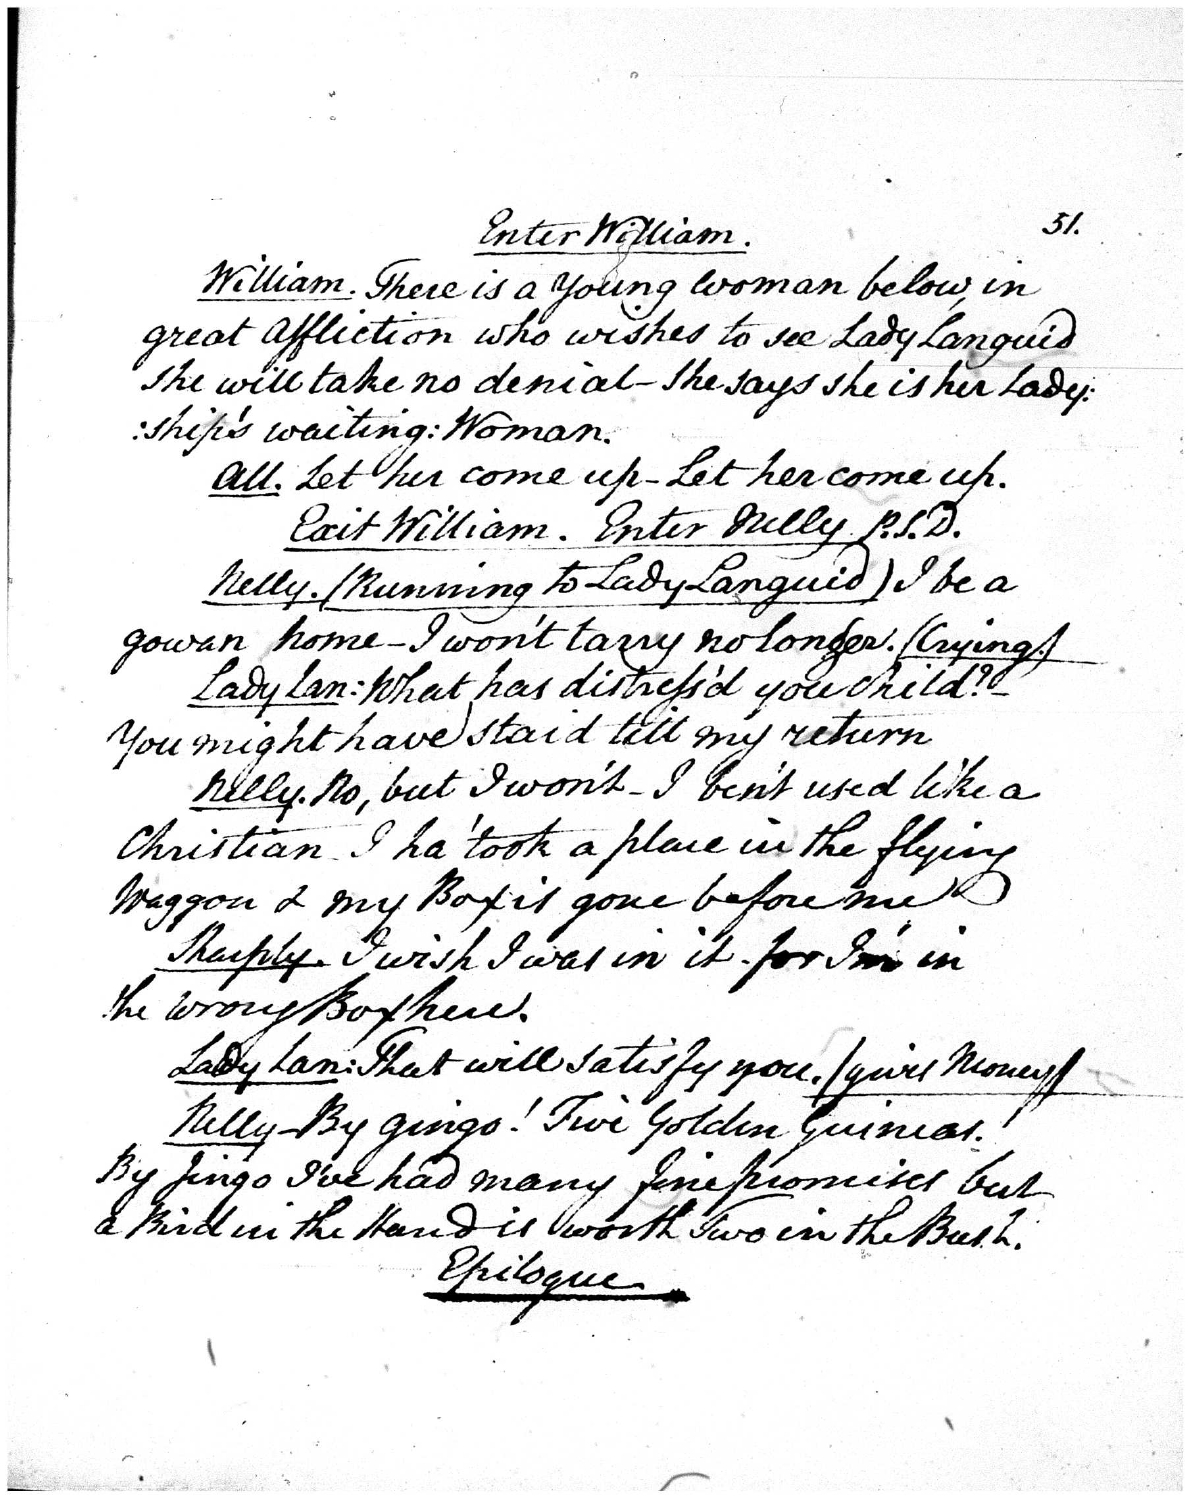 Enter William. 31.
William. There is a Young Woman below, in
great affliction who wishes to see Lady Languid
she will take no denial - She says she is her Lady:
:ship's waiting: Woman.
All. Let her come up - Let her come up.
Exit William. Enter Nelly P.S.D.
Nelly. (Running to Lady Languid) I be a
gowan home - I won't tarry no longer. (Crying.)
Lady Lan: What has distress'd you Child? -
You might have staid till my return
Nelly. No, but I won't - I ben't used like a
Christian - I ha' took a place in the flying
Waggon & my Box is gone before me
Sharply. I wish I was in it - for I'm in
the wrong Box here.
Lady Lan: That will satisfy you. (gives Money)
Nelly - By gingo! Five Golden Guineas.
By Jingo I've had many fine promises but
a Bird in the Hand is worth Two in the Bush.
Epilogue